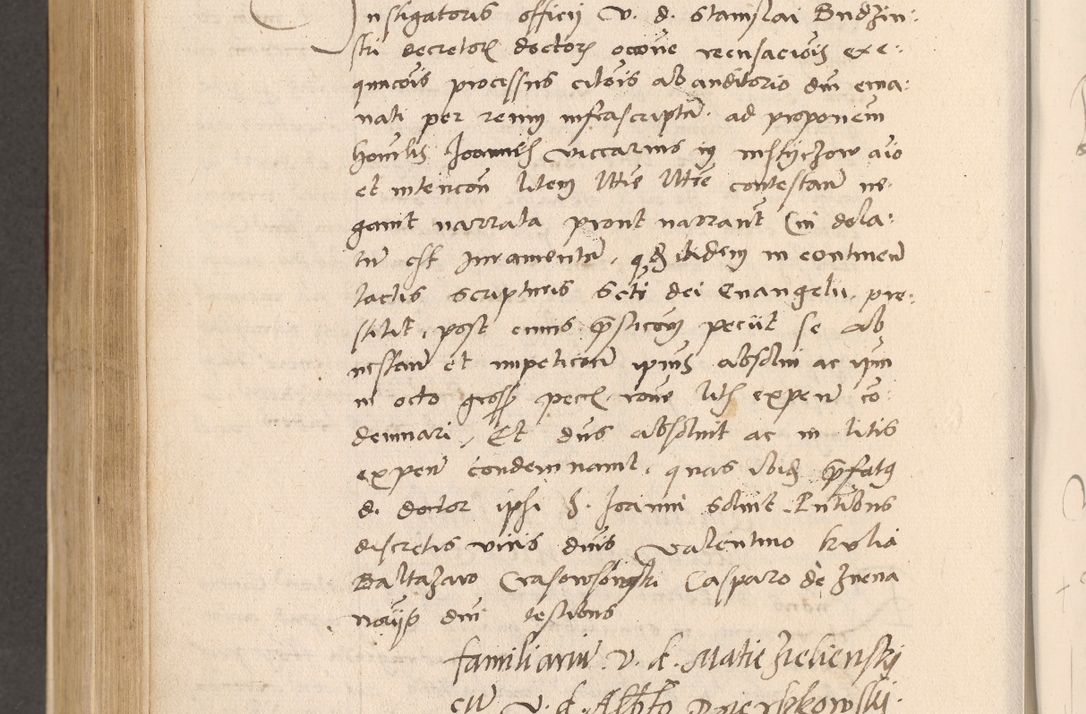 Instigatoris officii v. d. Stanislai Budzin:
ski decretor doctor occone recusacionis exe:
quucois processus citois ab auditorio dni ema:
nati per reum infrascriptu. ad proponem
honorlis Joannes viccarius in msstyczow aio
et intencon litem lttie lttie contestan ne:
gavit narrata prout narrant Cui dela:
tu est Juramentu, qd ibidem in continen
tactis scripturis scti dei Evangelii, pre:
stitit, post cuius prsticom peciit se ab
instan et impeticone ipius absolvi ac ipm
in octo gross pecc rone litis expen co
demnari, Et dns absolvit ac in litis
expen condemnavit, quas ibid prefatq
d. doctor ipsi d. Joanni solvit. Pntibus
discretis viris dnis Valentino kulia
Baltazaro Crasowsowski Casparo de Znena
notiis dni testibus
familiariu v. d. Matie Zielienskj
cu v. d. Albto Dzierskkowskj.